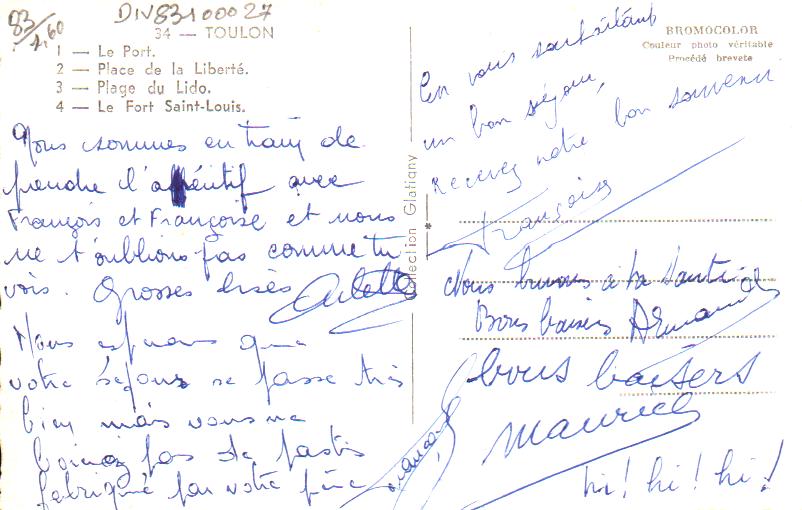 83
1,60
DIV83100027
34 — TOULON
1 — Le Port.
2 — Place de la Liberté.
3 — Plage du Lido.
4 — Le Fort Saint-Louis.
Nous sommes en train de
prendre l'apéritif avec
François et Françoise et nous
ne t'oublions pas comme tu
vois. Grosses bises Arlette
Nous espérons que
votre séjour se passe très
bien mais vous ne
boirez pas de pastis
fabriqué par votre père
François
Collection Glatigny
BROMOCOLOR
Couleur photo véritable
Procédé breveté
En vous souhaitant
un bon séjour,
Recevez notre bon souvenir
Françoise
Nous buvons à ta santé
Bons baisers Armand
bons baisers
Maurice
hi! hi! hi!